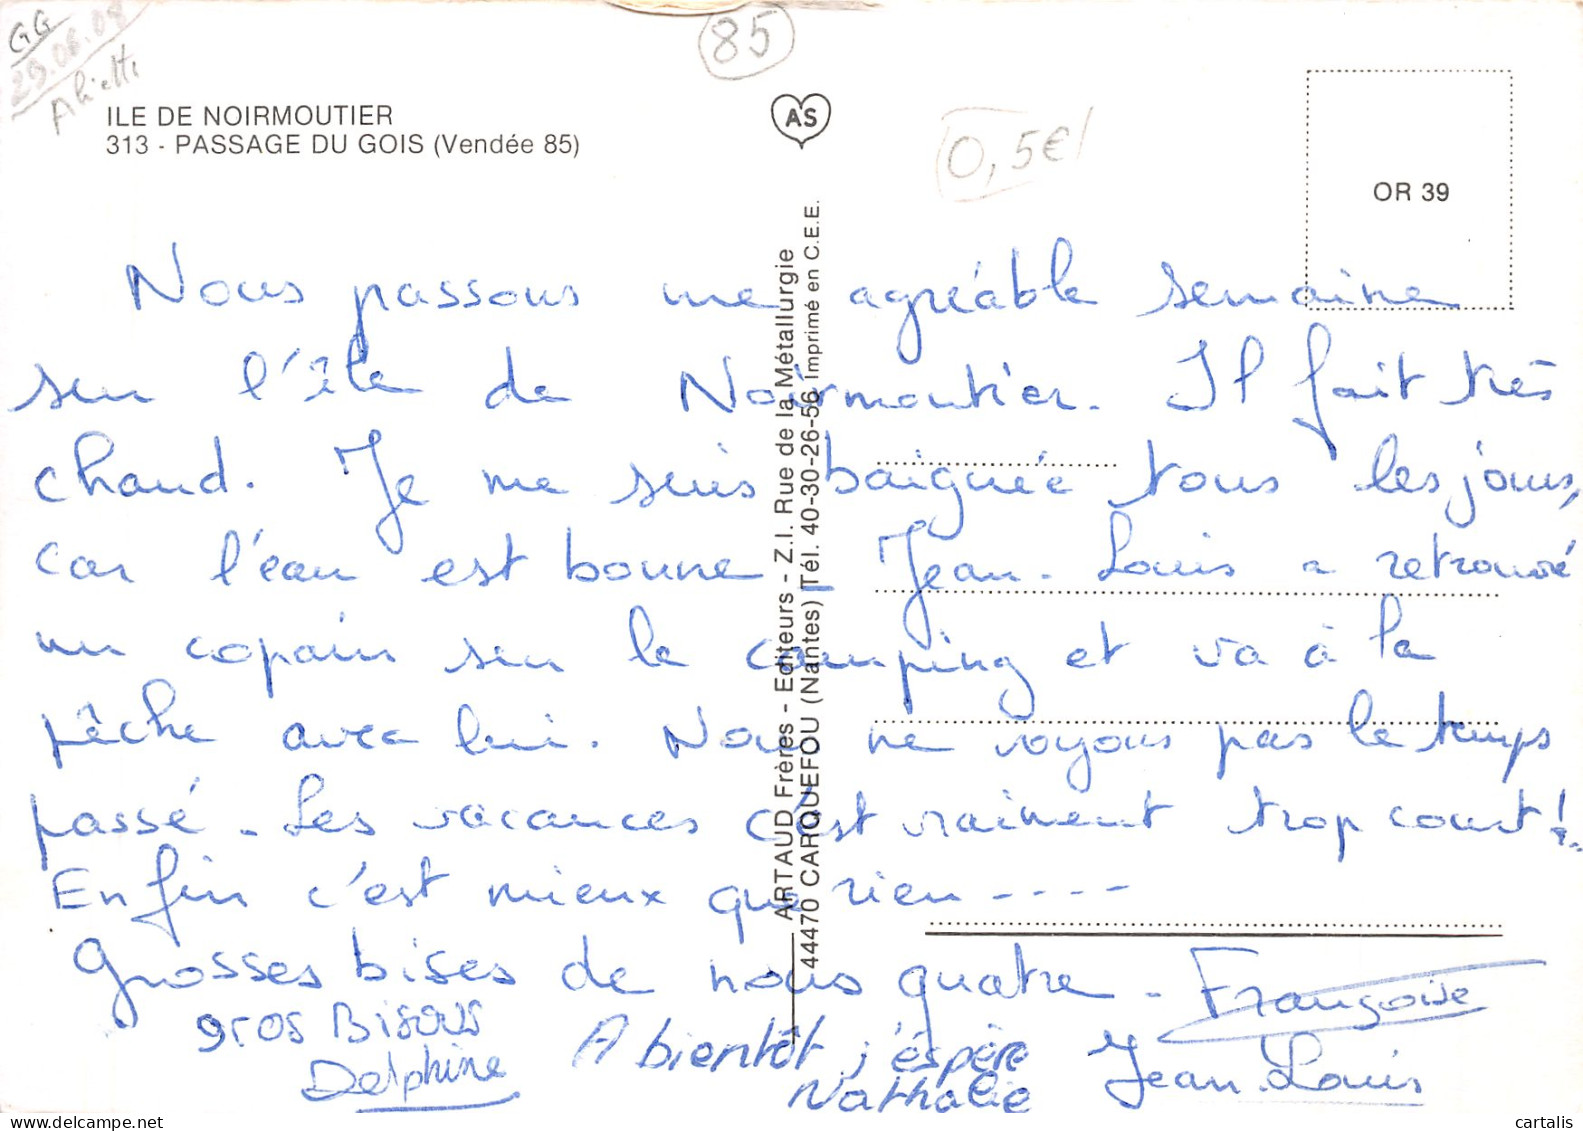 GG
29.06.09
Aliette
85
ILE DE NOIRMOUTIER
313 - PASSAGE DU GOIS (Vendée 85)
AS
0,5€
OR 39
ARTAUD Frères - Editeurs - Z.I. Rue de la Métallurgie
44470 CARQUEFOU (Nantes) Tél. 40-30-26-56 Imprimé en C.E.E.
Nous passons une agréable semaine
sur l'île de Noirmoutier. Il fait très
chaud. Je me suis baignée tous les jours,
car l'eau est bonne. Jean-Louis a retrouvé
un copain sur le camping et va à la
pêche avec lui. Nous ne voyons pas le temps
passé. Les vacances c'est vraiment trop court!..
Enfin c'est mieux que rien ----
Grosses bises de nous quatre. Françoise
gros Bisous
Delphine
A bientôt j'espère
Nathalie
Jean Louis
cartalis